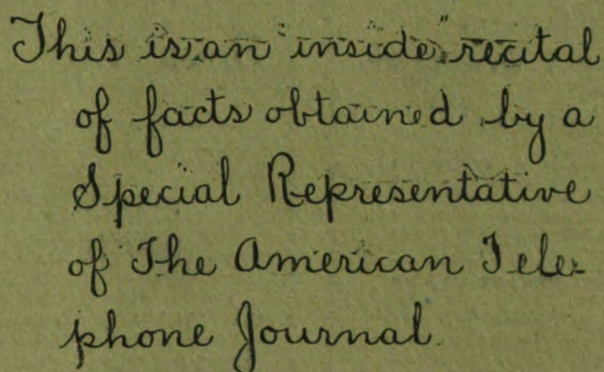 This is an "inside" recital
of facts obtained by a
Special Representative
of The American Tele-
phone Journal.